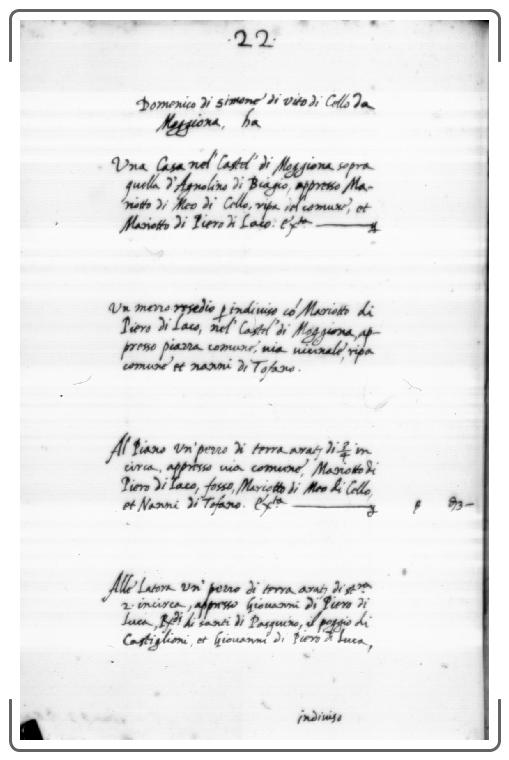 .22.
Domenico di Simone di Vito di Cello da
Moggiona, ha
Una Casa nel Castel di Moggiona sopra
quella d'Agnolino di Biagio, appresso Ma-
riotto di Meo di Cello, ripa del comune, et
Mariotto di Piero di Laco.
Un mezzo resedio p indiviso có Mariotto di
Piero di Laco, nel Castel di Moggiona, ap-
presso piazza comune, via vicinale, ripa
comune et nanni di Tofano.
Al Piano un' pezzo di terra arat. di in
circa, appresso via comune, Mariotto di
Piero di Laco, fosso, Mariotto di Meo di Cello,
et Nanni di Tofano.
Alle Latora un' pezzo di terra arat. di
2. incirca, appresso Giovanni di Piero di
Luca, di santi di Pasquino, il poggio di
Castiglioni, et Giovanni di Piero di Luca,
indiviso